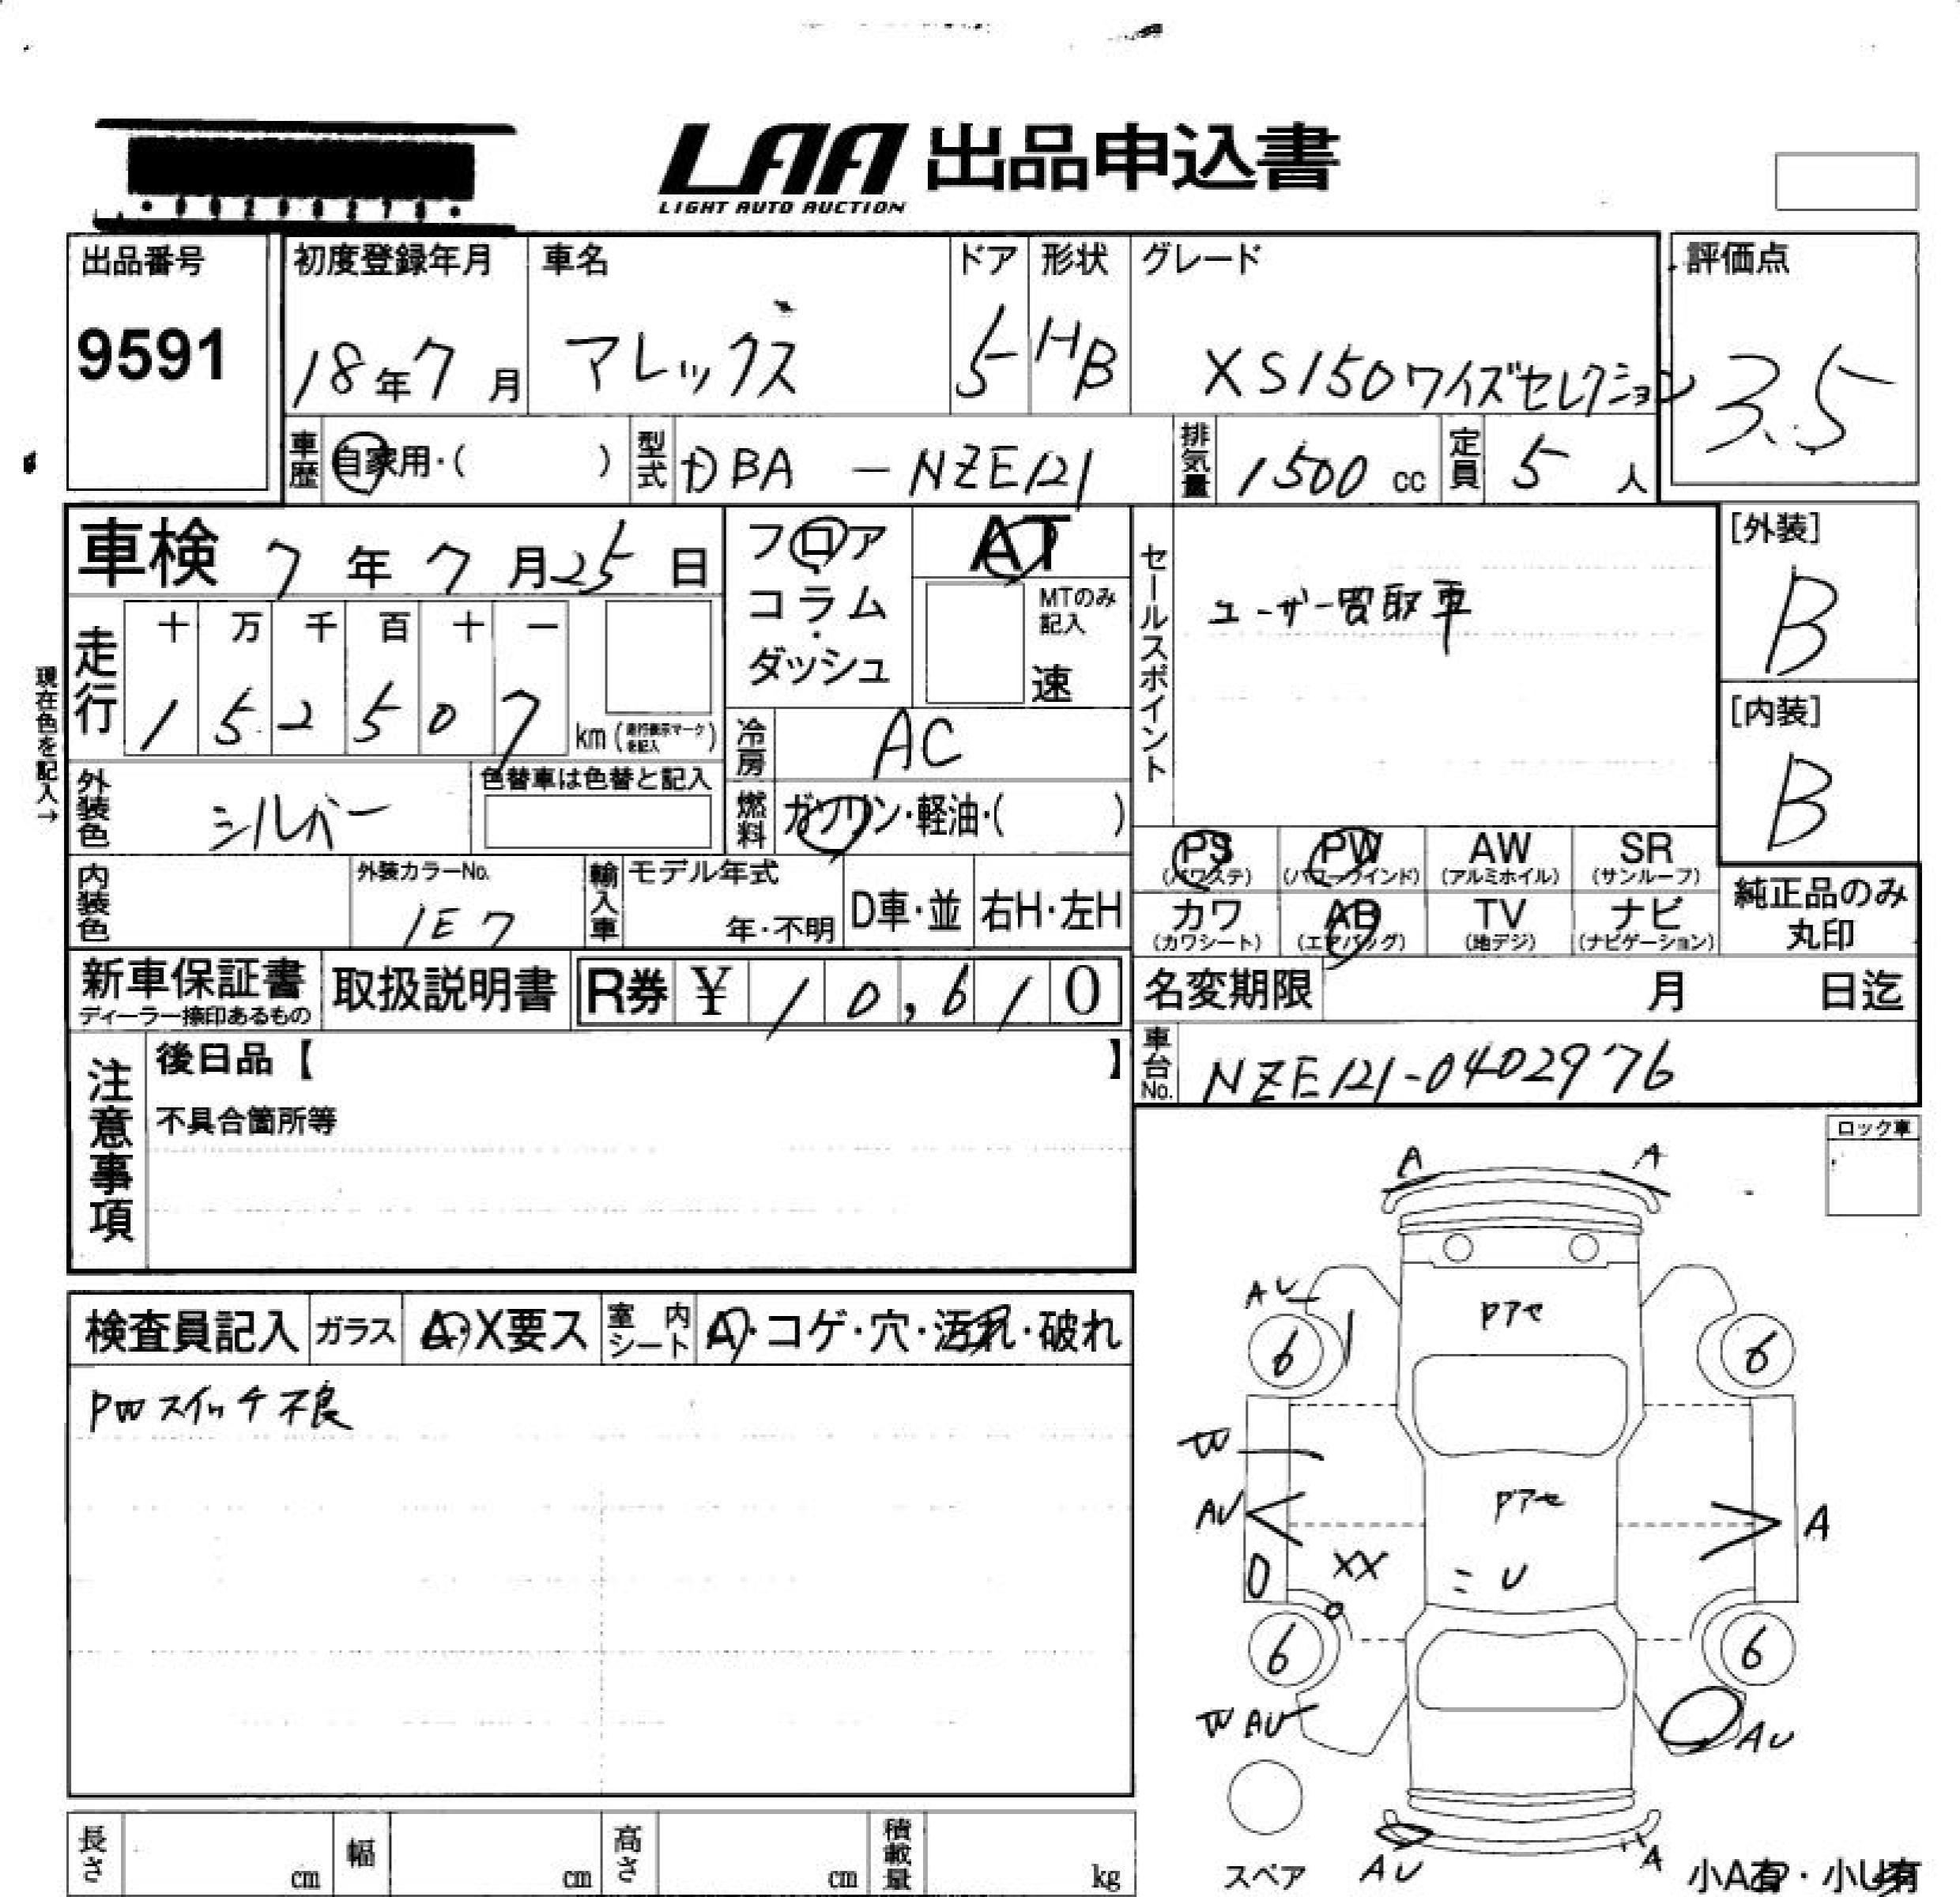 LAA 出品申込書
LIGHT AUTO AUCTION
出品番号
9591
初度登録年月
18年7月
車名
アレックス
ドア
5
形状
HB
グレード
XS150ワイズセレクション
評価点
3.5
車歴
自家用・( )
型式
DBA - NZE121
排気量
1500 cc
定員
5 人
車検 7年7月25日
フロア・コラム・ダッシュ
AT
MTのみ記入
速
セールスポイント
ユーザー買取車
[外装]
B
[内装]
B
現在色を記入→
走行
十 万 千 百 十 一
1 5 2 5 0 7
km (走行表示マークを記入)
冷房
AC
外装色
シルバー
色替車は色替と記入
燃料
ガソリン・軽油・( )
PS (パワステ)
PW (パワーウインド)
AW (アルミホイル)
SR (サンルーフ)
内装色
外装カラーNo.
1E7
輸入車
モデル年式
年・不明
D車・並
右H・左H
カワ (カワシート)
AB (エアバッグ)
TV (地デジ)
ナビ (ナビゲーション)
純正品のみ丸印
新車保証書
ディーラー捺印あるもの
取扱説明書
R券 ¥ 10,610
名変期限 月 日迄
車台No.
NZE121-0402976
注意事項
後日品【 】
不具合箇所等
ロック車
検査員記入
ガラス
A・X要ス
室内シート
A・コゲ・穴・汚れ・破れ
PWスイッチ不良
A A
AU
Pアセ
6 6
W
AU
Pアセ
A
XX
ニ U
6 6
W AU
AU
スペア
AU
A
小A有・小U有
長さ cm
幅 cm
高さ cm
積載量 kg